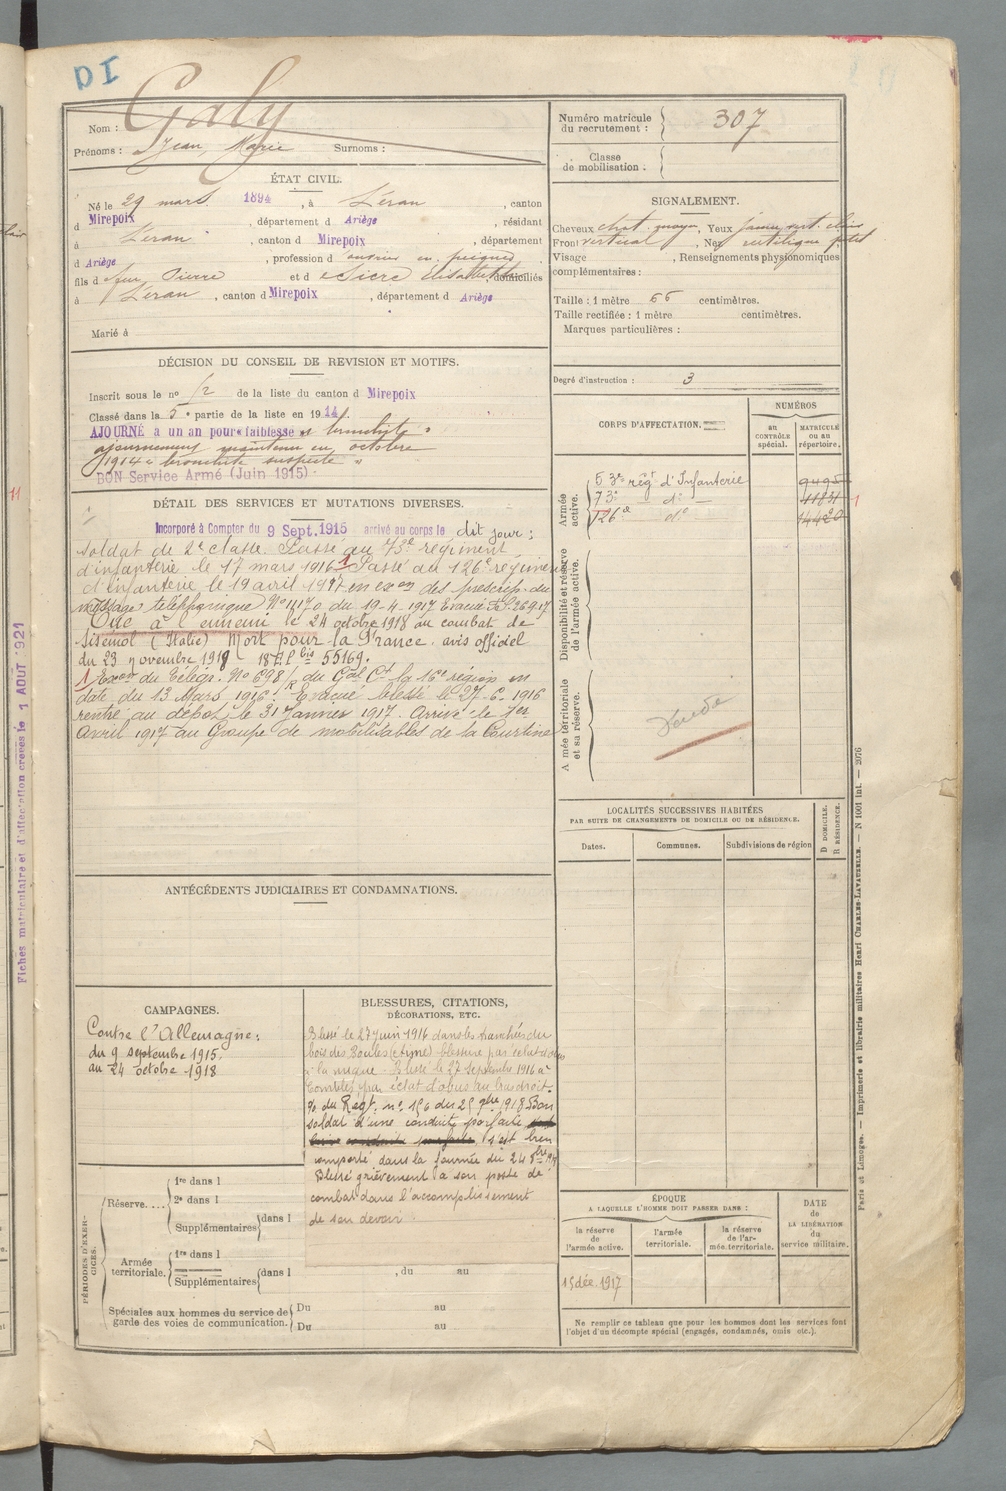 DI
Nom : Galy
Prénoms : Jean, Marie Surnoms :
ÉTAT CIVIL.
Né le 29 mars 1894, à Léran, canton
d Mirepoix, département d Ariège, résidant
à Léran, canton d Mirepoix, département
d Ariège, profession d ouvrier en peignes
fils d feu Pierre et d Elisabeth, domiciliés
à Léran, canton d Mirepoix, département d Ariège
Marié à
DÉCISION DU CONSEIL DE REVISION ET MOTIFS.
Inscrit sous le no 12 de la liste du canton d Mirepoix
Classé dans la 5e partie de la liste en 1914.
AJOURNÉ à un an pour « faiblesse et bronchite »
ajournement maintenu en octobre
1914 « bronchite suspecte »
BON Service Armé (Juin 1915)
DÉTAIL DES SERVICES ET MUTATIONS DIVERSES.
Incorporé à Compter du 9 Sept. 1915 arrivé au corps le dit jour ;
soldat de 2e classe. Passé au 73e régiment
d'infanterie le 17 mars 1916 1 Passé au 126e régiment
d'infanterie le 19 avril 1917 en exon des prescrip. du
message téléphonique No 1170 du 19-4-1917 Evacué
Tué à l'ennemi le 24 octobre 1918 au combat de
Sisemol (Italie) Mort pour la France. avis officiel
du 23 novembre 1918 bis 55169.
1 Exon du Télégr. No 698/ du Gal Ct la 16e région en
date du 13 Mars 1916. Evacué blessé le 27-6-1916
rentré au dépôt le 31 Janvier 1917. Arrivé le 1er
Avril 1917 au Groupe de mobilisables de la Courtine
ANTÉCÉDENTS JUDICIAIRES ET CONDAMNATIONS.
CAMPAGNES.
Contre l'Allemagne :
du 9 septembre 1915.
au 24 octobre 1918
BLESSURES, CITATIONS,
DÉCORATIONS, ETC.
Blessé le 27 juin 1916 dans les tranchées du
bois des Boules (Aisne) blessure par éclat d'obus
à la nuque. Blessé le 27 septembre 1916 à
Combles par éclat d'obus au bras droit.
du Regt. no 156 du 25 9bre 1918 Bon
soldat d'une conduite parfaite
s'est bien
comporté dans la journée du 24 8bre
Blessé grièvement à son poste de
combat dans l'accomplissement
de son devoir.
PÉRIODES D'EXERCICES.
Réserve....
1re dans l
2e dans l
Supplémentaires dans l
Armée territoriale.
1re dans l
Supplémentaires dans l , du au
Spéciales aux hommes du service de garde des voies de communication.
Du au
Du au
Numéro matricule du recrutement : 307
Classe de mobilisation.
SIGNALEMENT.
Cheveux chat. moyen, Yeux jaune vert clair
Front vertical, Nez rectiligne petit
Visage , Renseignements physionomiques
complémentaires :
Taille : 1 mètre 66 centimètres.
Taille rectifiée : 1 mètre centimètres.
Marques particulières :
Degré d'instruction : 3
CORPS D'AFFECTATION.
NUMÉROS
au CONTRÔLE spécial.
MATRICULE ou au répertoire.
Armée active.
53e régt d'Infanterie 9495
73e do 11831 1
126e do 14420
Disponibilité et réserve de l'armée active.
Armée territoriale et sa réserve.
LOCALITÉS SUCCESSIVES HABITÉES
PAR SUITE DE CHANGEMENTS DE DOMICILE OU DE RÉSIDENCE.
Dates. Communes. Subdivisions de région
D DOMICILE.
R RÉSIDENCE.
ÉPOQUE
A LAQUELLE L'HOMME DOIT PASSER DANS :
la réserve de l'armée active.
l'armée territoriale.
la réserve de l'armée territoriale.
DATE de LA LIBÉRATION du service militaire.
15 déc. 1917
Ne remplir ce tableau que pour les hommes dont les services font
l'objet d'un décompte spécial (engagés, condamnés, omis etc.).
Paris et Limoges. — Imprimerie et librairie militaires Henri CHARLES-LAVAUZELLE. — N 1001 Int. — 2076
Fiches matriculaire et d'affectation créées le 1 AOUT 1921
11